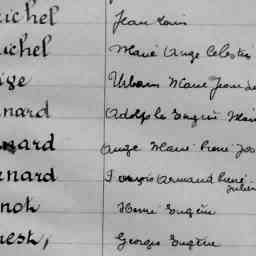 ichel Jean Louis
ichel Marie Ange Célestin
ise Urbain Marie Jean
enard Adolphe Eugène Marie
enard Ange Marie Pierre Jos
enard François Armand René
Julien
not Henri Eugène
nest, Georges Eugène